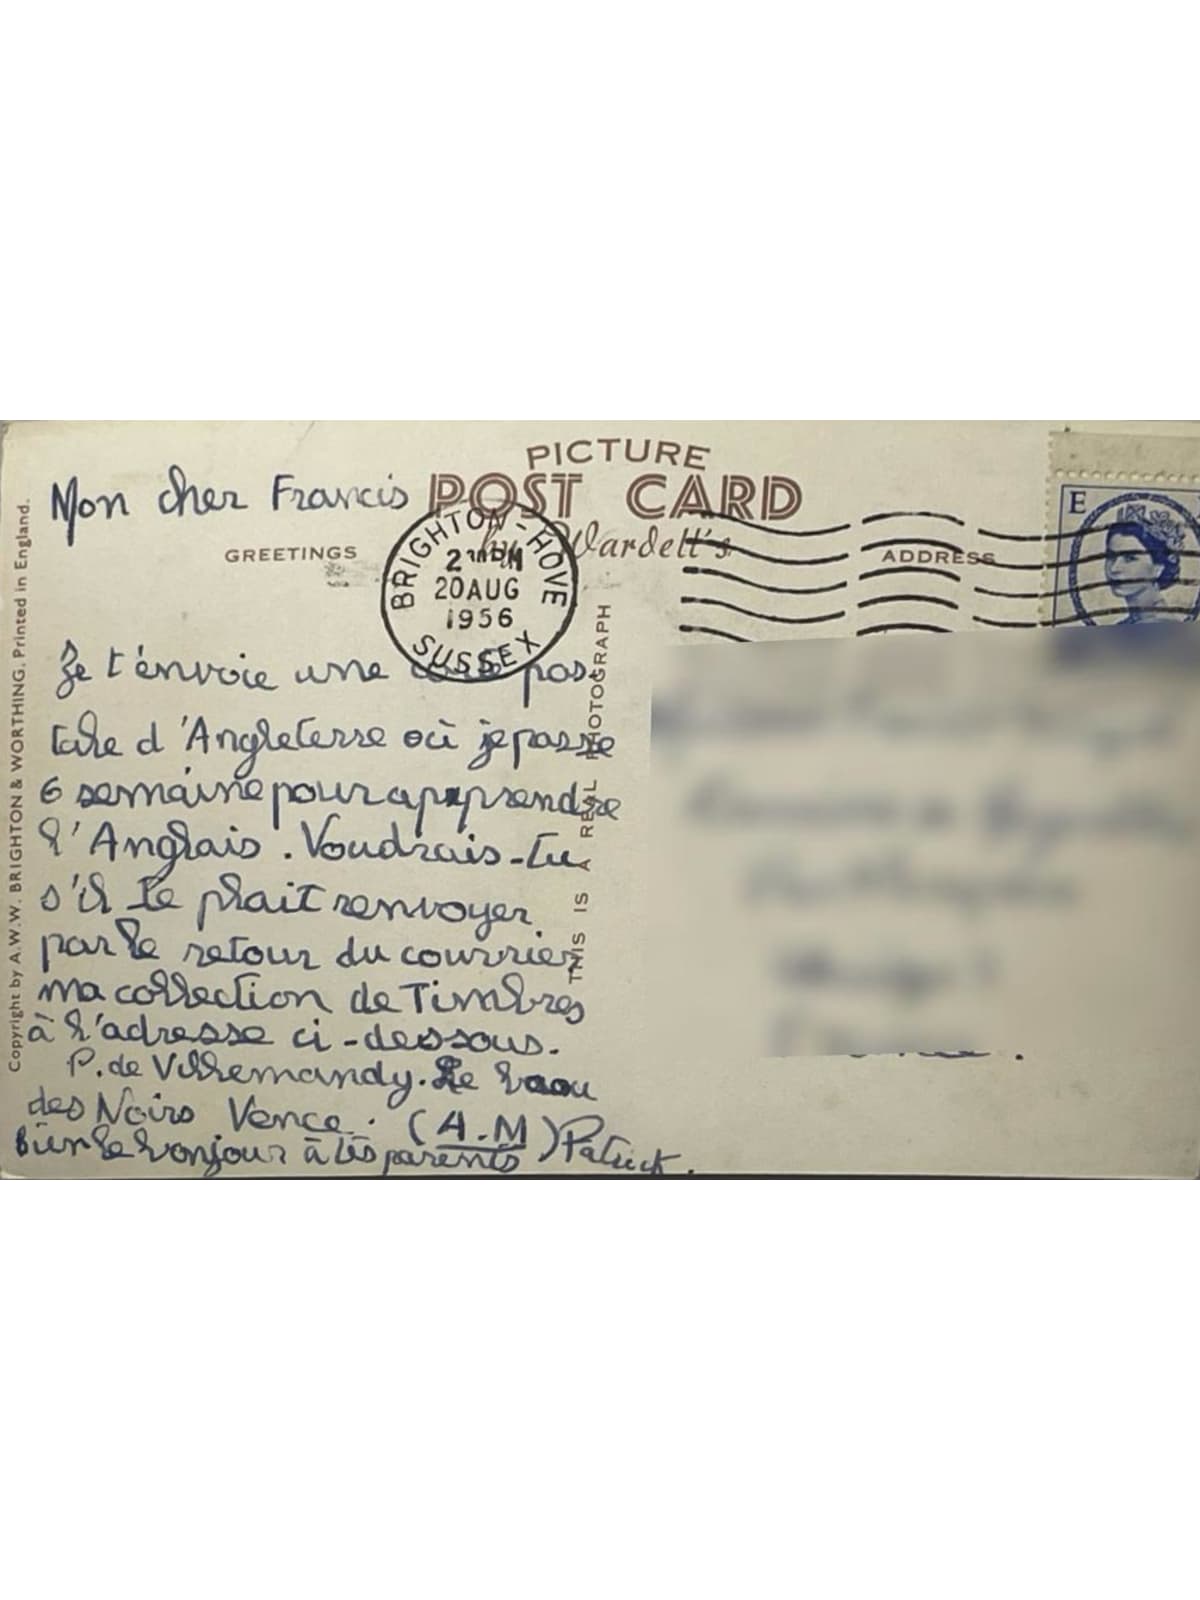 PICTURE
POST CARD
by Wardell's
GREETINGS
ADDRESS
BRIGHTON - HOVE
20 AUG
1956
SUSSEX
E
Copyright by A.W.W. BRIGHTON & WORTHING. Printed in England.
THIS IS A REAL PHOTOGRAPH
Mon cher Francis
Je t'énvoie une carte pos-
tale d'Angleterre où je passe
6 semaine pour apprendre
l'Anglais. Voudrais-tu
s'il te plait renvoyer
par le retour du courrier
ma collection de Timbres
à l'adresse ci-dessous.
P. de Villemandy. Le baou
des Noirs Vence. (A.M)
bien le bonjour à tes parents Patrick.